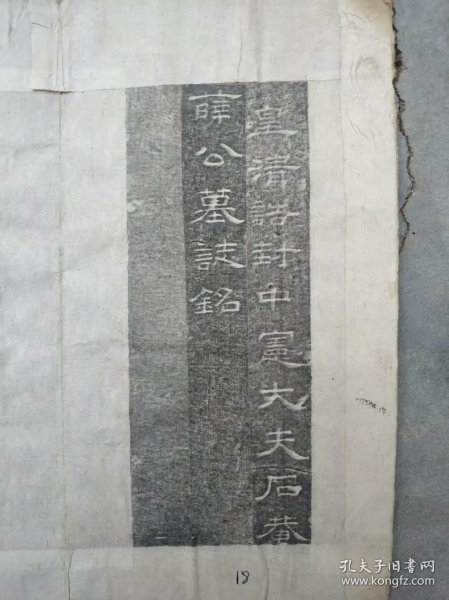 皇清誥封中憲大夫石菴
薛公墓誌銘
一
18
孔夫子旧书网
www.kongfz.com